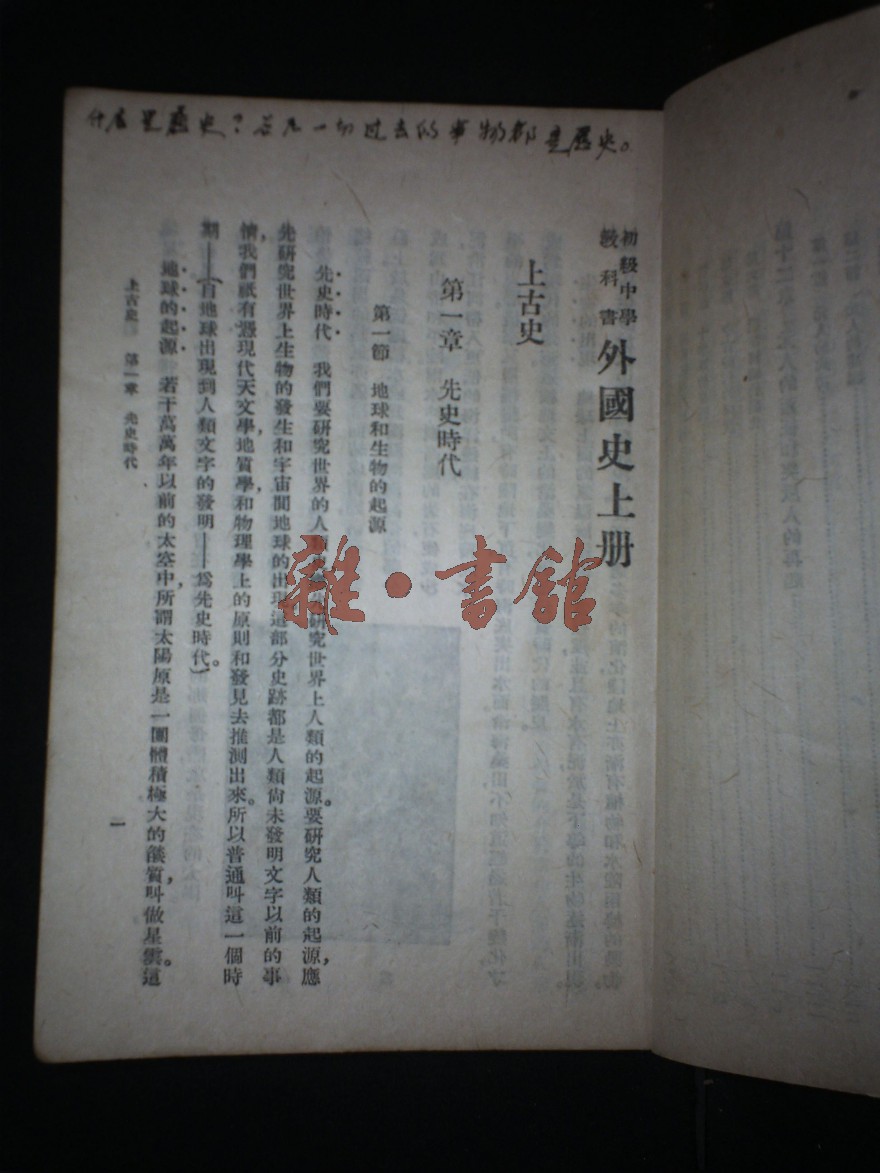 什么是歷史？若凡一切过去的事物都是歷史。
初級中學
教科書
外國史上册
上古史
第一章 先史時代
第一節 地球和生物的起源
先史時代 我們要研究世界的人類研究世界上人類的起源。要研究人類的起源，應
先研究世界上生物的發生和宇宙間地球的出現這部分史跡都是人類尙未發明文字以前的事
情，我們祇有憑現代天文學，地質學，和物理學上的原則和發見去推測出來。所以普通叫這一個時
期——（自地球出現到人類文字的發明——爲先史時代）。
地球的起源 若干萬萬年以前的太空中，所謂太陽原是一團體積極大的燄質，叫做星雲。這
上古史 第一章 先史時代
一
雜·書館